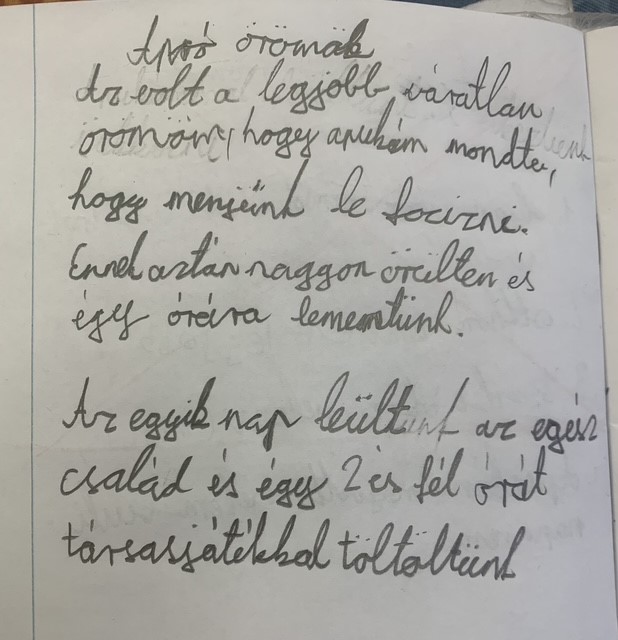 Apró örömök
Az volt a legjobb váratlan
örömöm, hogy apukám mondta,
hogy menjünk le focizni.
Ennek aztán naggon örülten és
égy órára lementünk.
Az egyik nap leültunk az egész
család és égy 2 és fél órát
társasjátékkal töltöltünk